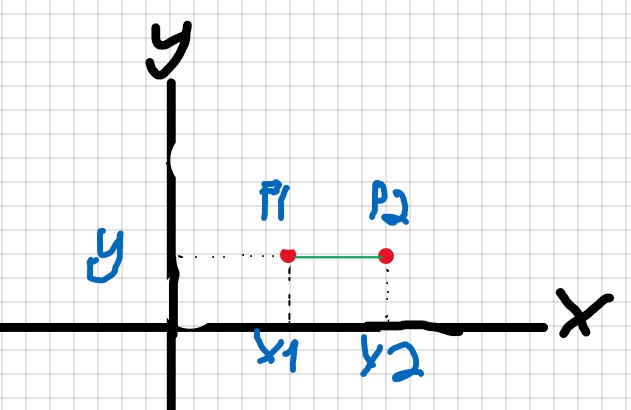 y
P1 P2
y
x
x1 x2